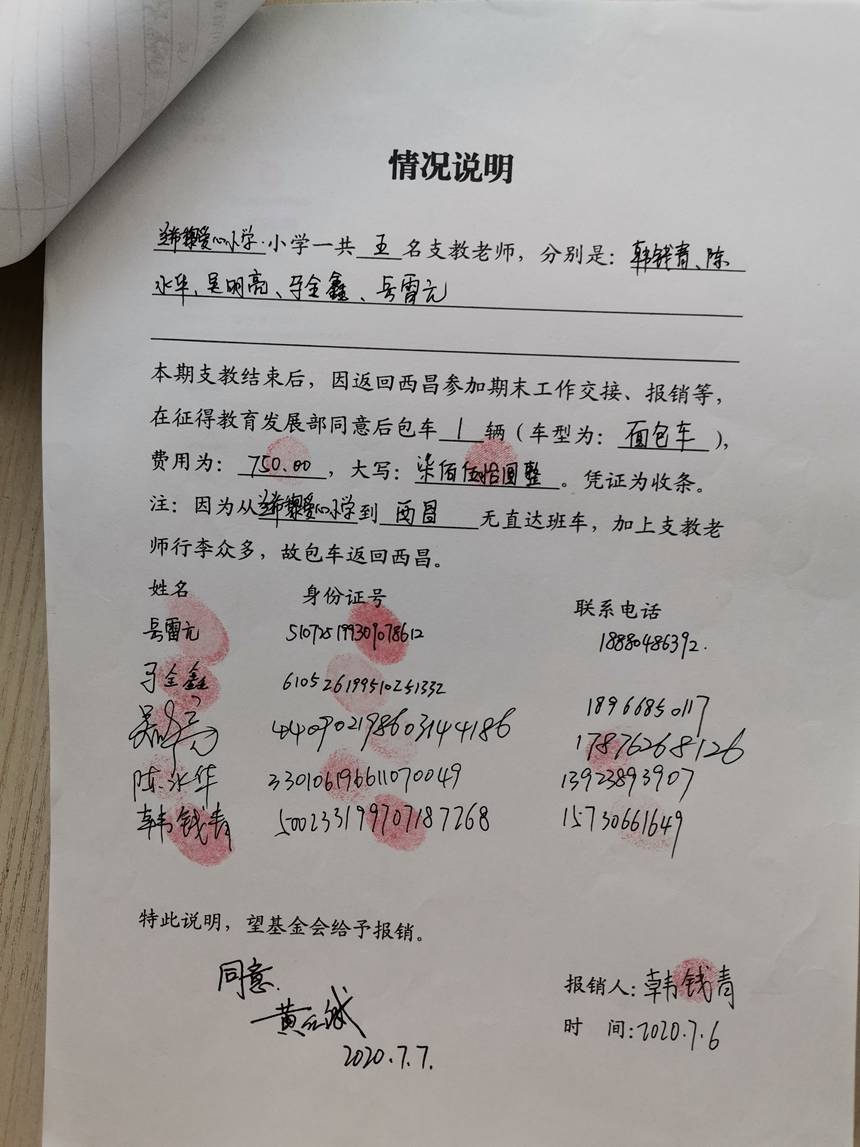 情况说明
爱心小学·小学一共 五 名支教老师，分别是：韩钱青、陈
水华、吴明亮、马全鑫、岳雷元
本期支教结束后，因返回西昌参加期末工作交接、报销等，
在征得教育发展部同意后包车 1 辆（车型为：面包车），
费用为：750.00，大写：柒佰伍拾圆整。凭证为收条。
注：因为从爱心小学到 西昌 无直达班车，加上支教老
师行李众多，故包车返回西昌。
姓名 身份证号 联系电话
岳雷元 510725199309078612 18880486392.
马全鑫 610526199510251332 18966850117
吴明亮 440902198603144186 17876268126
陈水华 330106196611070049 13923893907
韩钱青 500233199707187268 15730661649
特此说明，望基金会给予报销。
同意.
2020.7.7.
报销人：韩钱青
时 间：2020.7.6